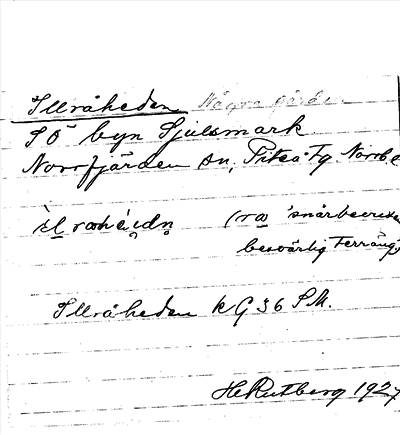 Illråheden Några gårdar
SÖ byn Sjulsmark
Norrfjärden sn, Piteå tg. Norrb.
(ra 'snårbevuxen
besvärlig terräng)
Illråheden k G 36 SM.
H. Rutberg 1927